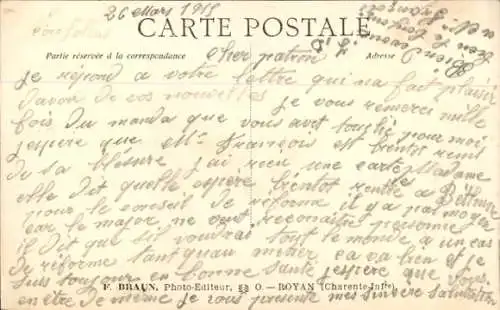 26 Mars 1915
CARTE POSTALE
Partie réservée à la correspondance
Adresse
Cher patron
Je répond a votre lettre qui ma fait plaisir
davoir de vos nouvelles je vous remercie mille
fois du manda que vous avet touché pour moi,
jespere que Mr François est bientot remi
de sa blessure j'ai recu une carte Madame
elle dit quelle espère bientot rentré a
pour le conseil de reforme il y a pas moyen
car le major ne veut reconaitre personne
il dit que sil voudrai tout le monde a un cas
de réforme tant quau metier ca va bien et je
suis toujour en bonne santé jespère que vous
en etre de même je vous presente mes sincère salutation
F. BRAUN, Photo-Editeur, O.—ROYAN (Charente-Infre)